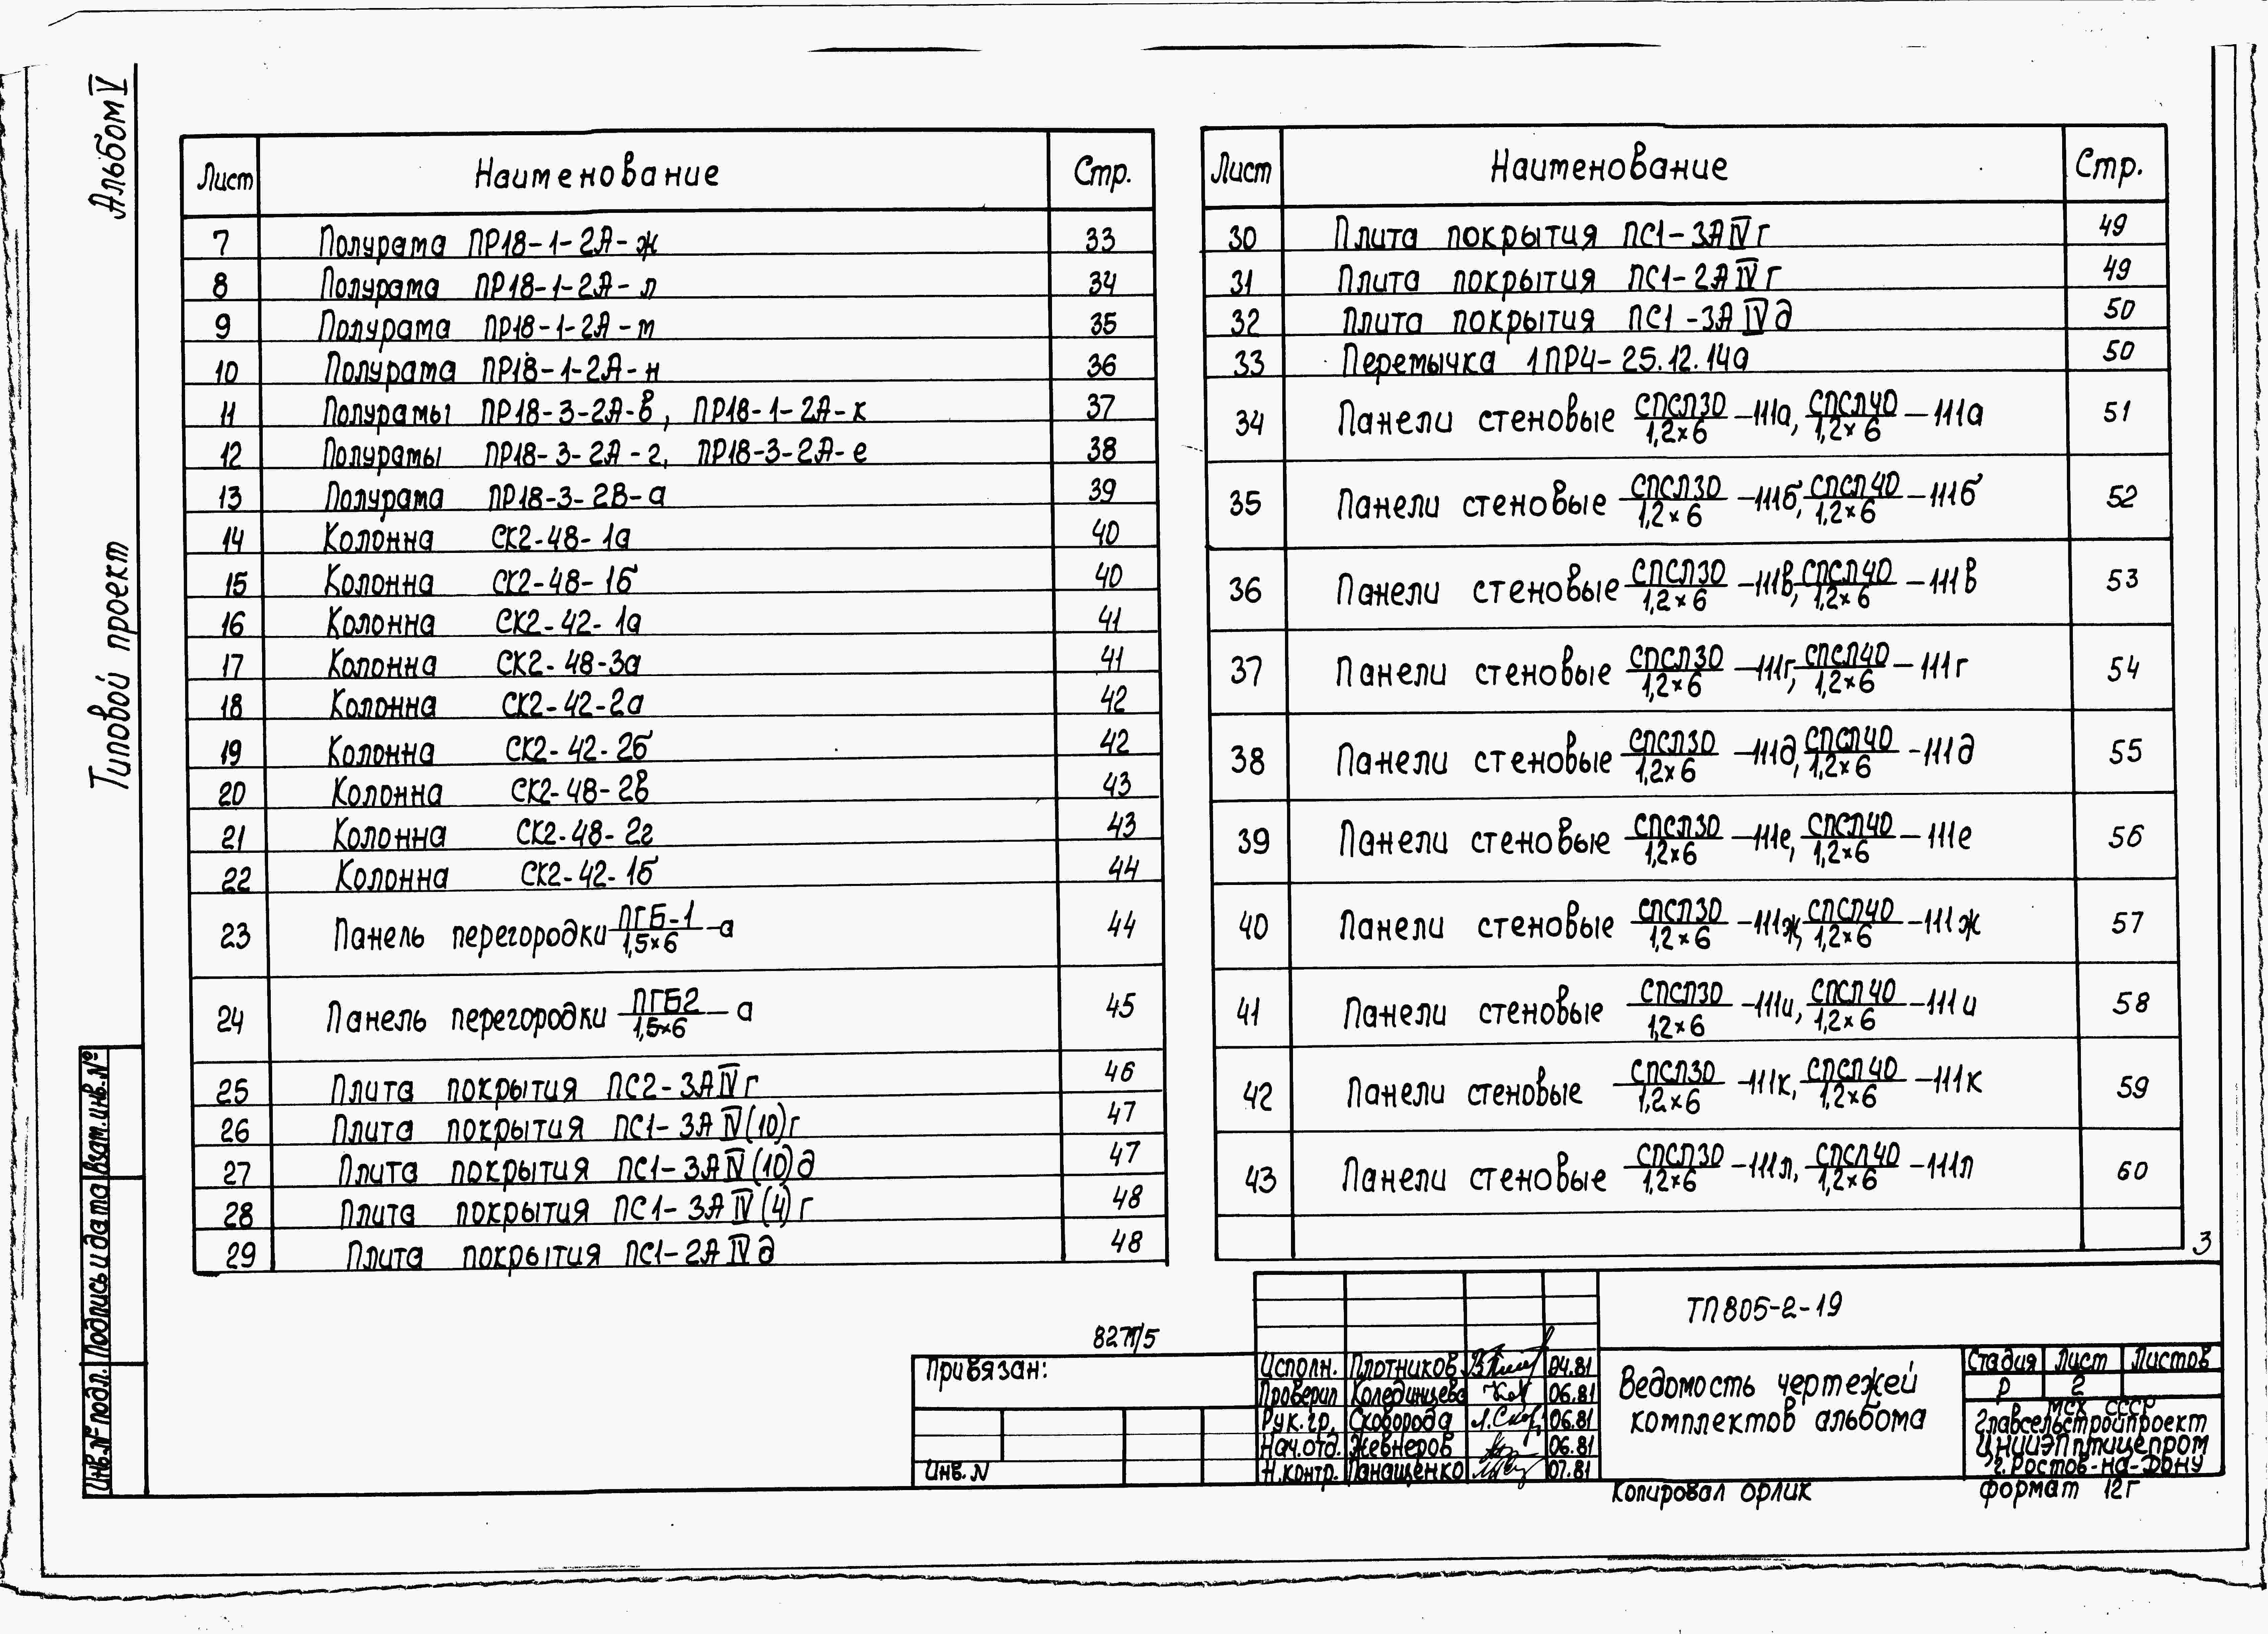 Альбом V
Типовой проект
Лист Наименование Стр.
7 Полурама ПР18-1-2А-ж 33
8 Полурама ПР18-1-2А-л 34
9 Полурама ПР18-1-2А-м 35
10 Полурама ПР18-1-2А-н 36
11 Полурамы ПР18-3-2А-в, ПР18-1-2А-к 37
12 Полурамы ПР18-3-2А-г, ПР18-3-2А-е 38
13 Полурама ПР18-3-2В-а 39
14 Колонна СК2-48-1а 40
15 Колонна СК2-48-1б 40
16 Колонна СК2-42-1а 41
17 Колонна СК2-48-3а 41
18 Колонна СК2-42-2а 42
19 Колонна СК2-42-2б 42
20 Колонна СК2-48-2в 43
21 Колонна СК2-48-2г 43
22 Колонна СК2-42-1б 44
23 Панель перегородки ПГБ-1/1,5×6-а 44
24 Панель перегородки ПГБ2/1,5×6-а 45
25 Плита покрытия ПС2-3АIVг 46
26 Плита покрытия ПС1-3АIV(10)г 47
27 Плита покрытия ПС1-3АIV(10)д 47
28 Плита покрытия ПС1-3АIV(4)г 48
29 Плита покрытия ПС1-2АIVд 48
Лист Наименование Стр.
30 Плита покрытия ПС1-3АIVг 49
31 Плита покрытия ПС1-2АIVг 49
32 Плита покрытия ПС1-3АIVд 50
33 Перемычка 1ПР4-25.12.14а 50
34 Панели стеновые СПСЛ30/1,2×6-111а, СПСЛ40/1,2×6-111а 51
35 Панели стеновые СПСЛ30/1,2×6-111б, СПСЛ40/1,2×6-111б 52
36 Панели стеновые СПСЛ30/1,2×6-111в, СПСЛ40/1,2×6-111в 53
37 Панели стеновые СПСЛ30/1,2×6-111г, СПСЛ40/1,2×6-111г 54
38 Панели стеновые СПСЛ30/1,2×6-111д, СПСЛ40/1,2×6-111д 55
39 Панели стеновые СПСЛ30/1,2×6-111е, СПСЛ40/1,2×6-111е 56
40 Панели стеновые СПСЛ30/1,2×6-111ж, СПСЛ40/1,2×6-111ж 57
41 Панели стеновые СПСЛ30/1,2×6-111и, СПСЛ40/1,2×6-111и 58
42 Панели стеновые СПСЛ30/1,2×6-111к, СПСЛ40/1,2×6-111к 59
43 Панели стеновые СПСЛ30/1,2×6-111л, СПСЛ40/1,2×6-111л 60
3
Взам.инв.№
Подпись и дата
Инв.№ подл.
Привязан:
Инв.N
Исполн. Плотников 04.81
Проверил Колединцева 06.81
Рук.гр. Сковорода 06.81
Нач.отд. Жевнеров 06.81
Н.контр. Панащенко 07.81
ТП805-2-19
Ведомость чертежей
комплектов альбома
Стадия Лист Листов
Р 2
МСХ СССР
Главсельстройпроект
ЦНИИЭПптицепром
г.Ростов-на-Дону
Копировал Орлик
формат 12г